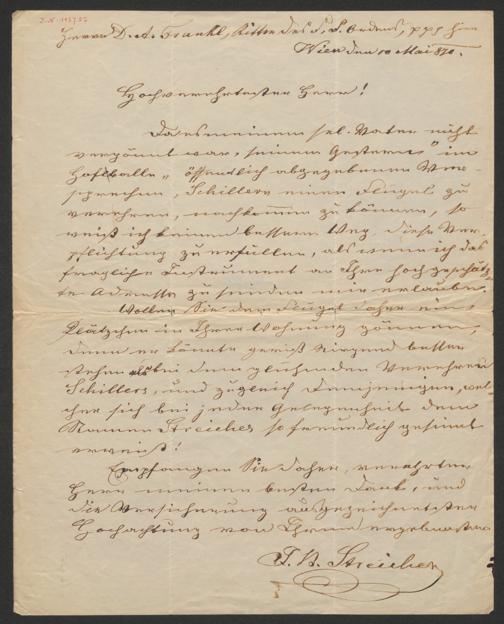 Herrn D. A. Frankl, Ritter des F. J. Ordens, ppp hier
Wien den 10 Mai 870.
Hochverehrtester Herr!
Da es meinem sel. Vater nicht
vergönnt war, seinem im
öffendlich abgegebenen Ver-
sprechen, Schillern einen Flügel zu
verehren, nachkommen zu können, so
weiß ich keinen bessern Weg, diese Ver-
pflichtung zu erfüllen, als wenn ich das
fragliche Instrument an Ihre hochgeschätz-
te Adresse zu senden mir erlaube.
Wollen Sie dem Flügel daher ein
Plätzchen in Ihrer Wohnung gönnen,
denn er könnte gewiß nirgend besser
stehen als bei dem glühenden Verehrer
Schillers, und zugleich Demjenigen, wel-
cher sich bei jeder Gelegenheit dem
Namen Streicher so freundlich gesinnt
erweist!
Empfangen Sie daher, verehrter
Herr meinen besten Dank, und
die Versicherung ausgezeichnetster
Hochachtung von Ihrem ergebensten
J. B. Streicher